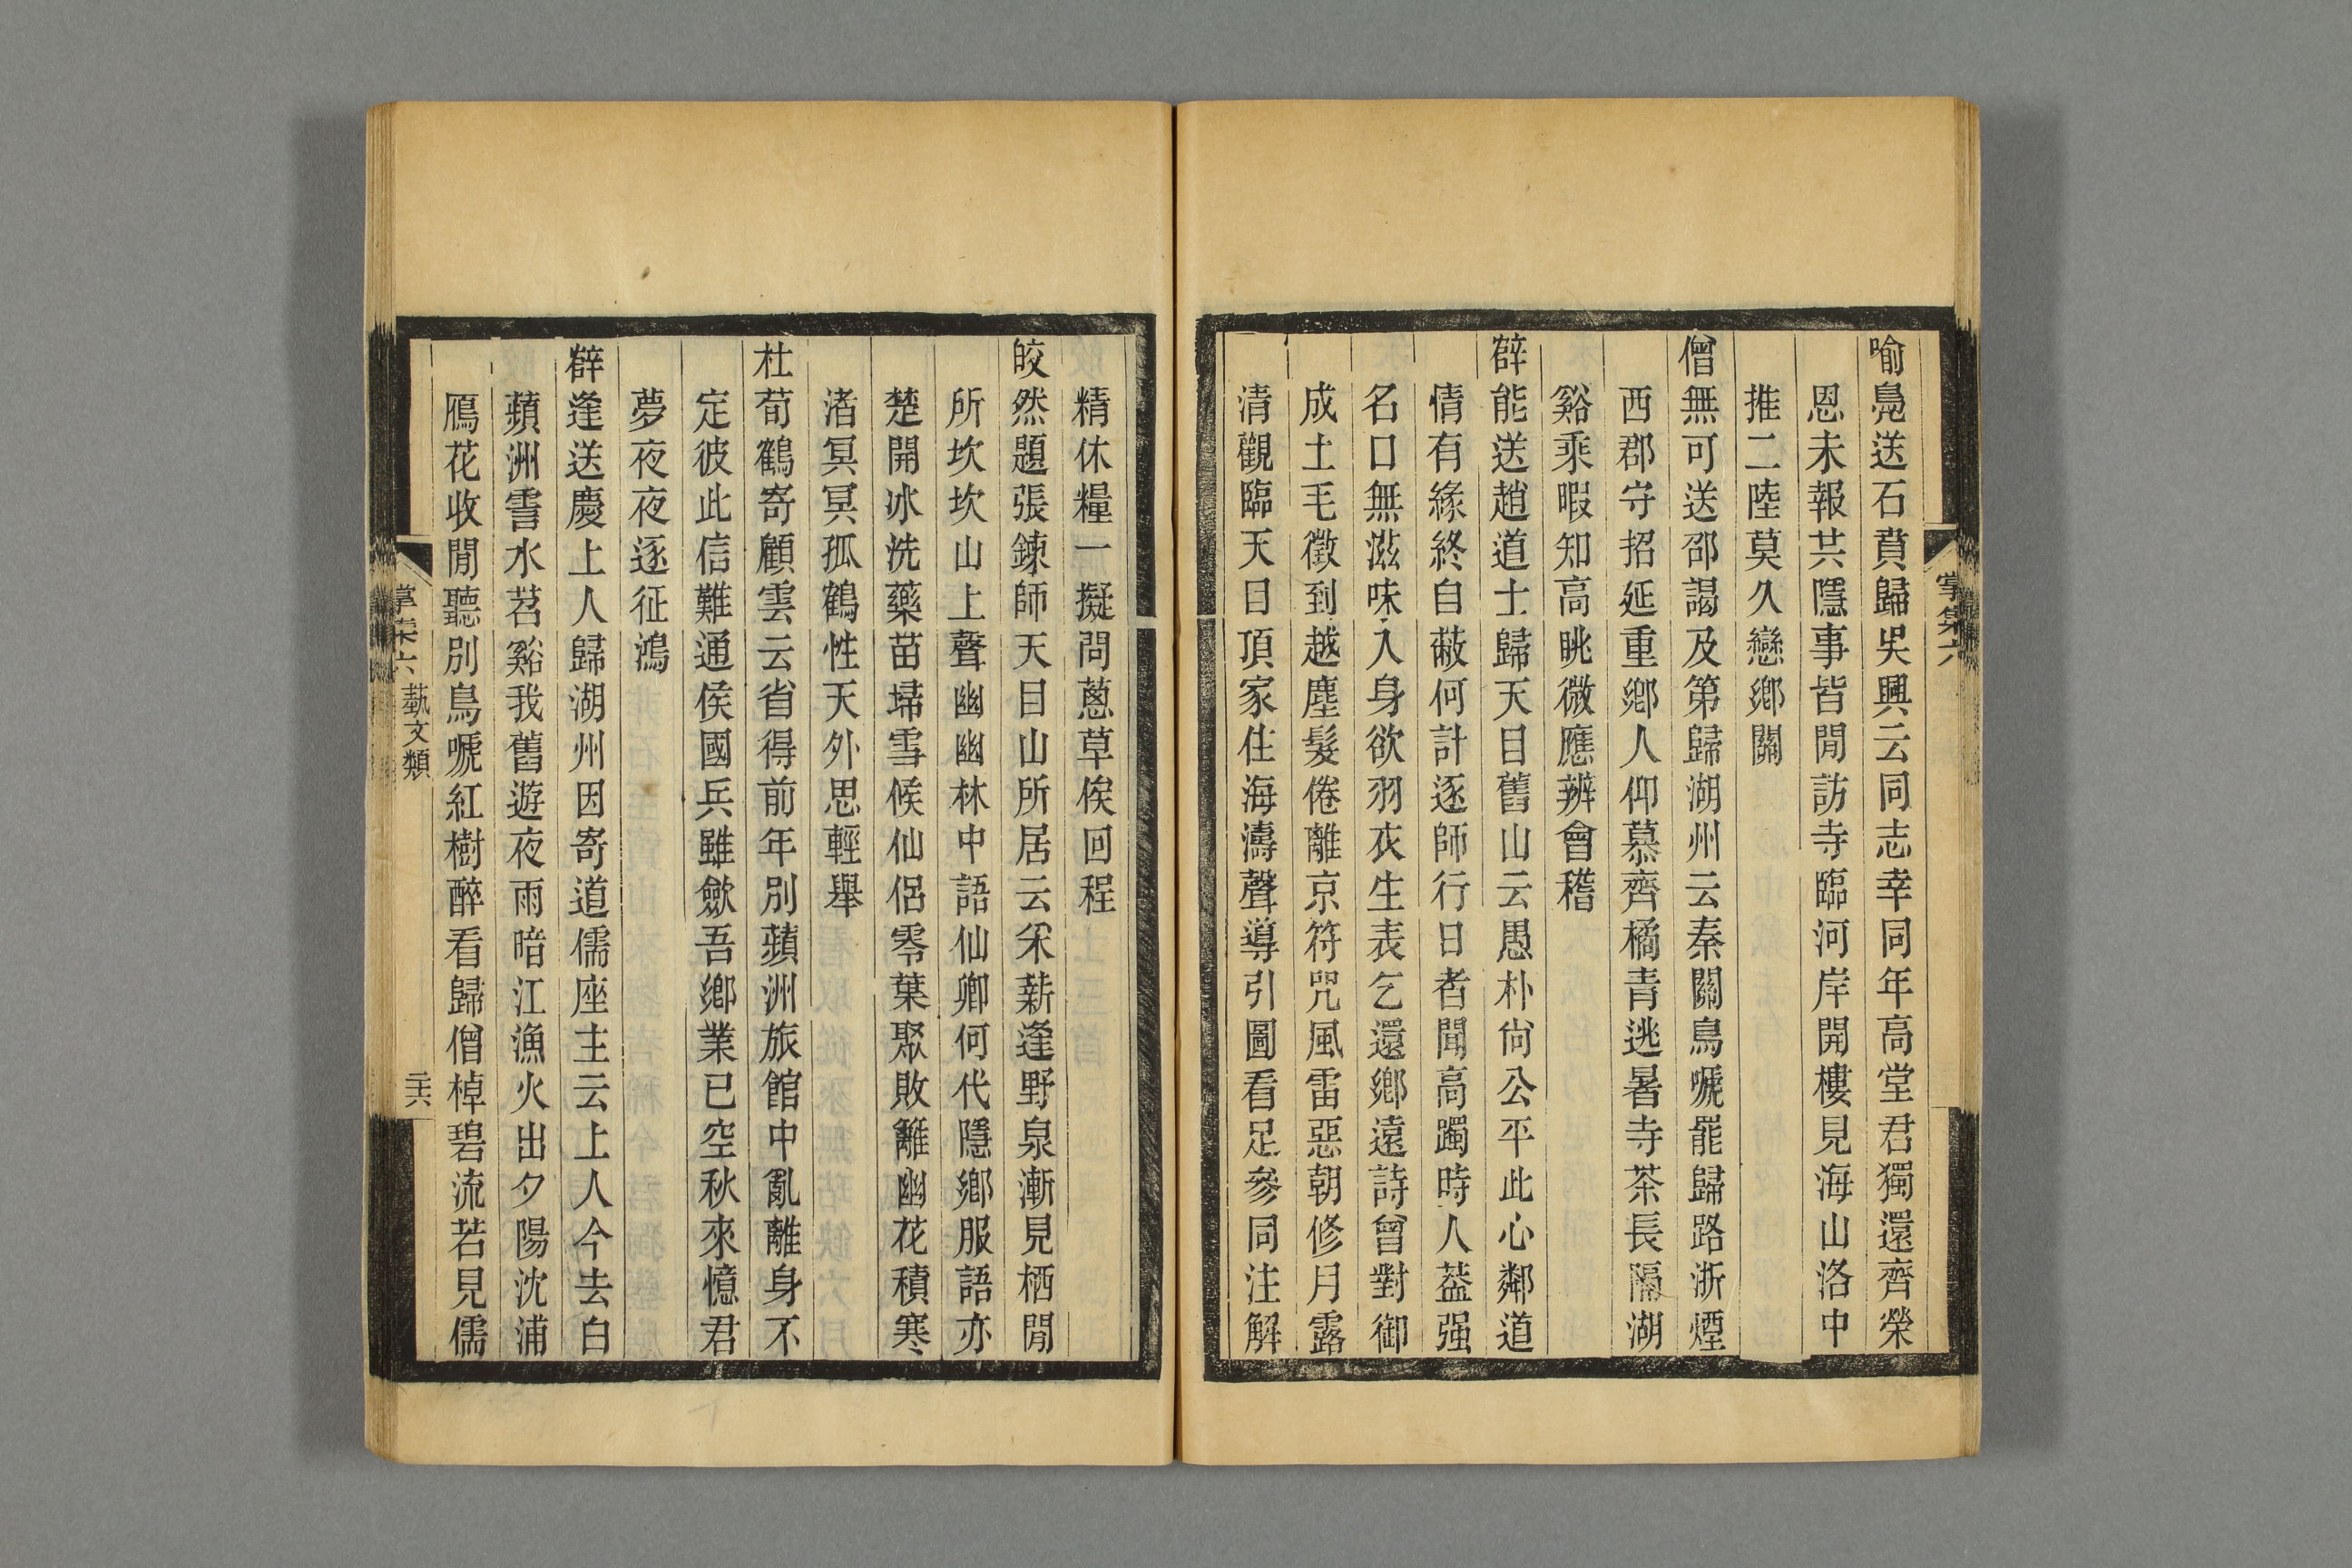 喻鳧送石賁歸吳興云同志幸同年高堂君獨還齊榮
恩未報共隱事皆閒訪寺臨河岸開樓見海山洛中
推二陸莫久戀鄉關
僧無可送邵謁及第歸湖州云秦關鳥嗁罷歸路浙煙
西郡守招延重鄉人仰慕齊橘青逃暑寺茶長隔湖
谿乘暇知高眺微應辨會稽
薛能送趙道士歸天目舊山云愚朴尙公平此心鄰道
情有緣終自蔽何計逐師行日者聞高躅時人葢强
名口無滋味入身欲羽衣生表乞還鄉遠詩曾對御
成土毛徵到越塵髮倦離京符咒風雷惡朝修月露
清觀臨天目頂家住海濤聲導引圖看足參同注解
精休糧一擬問蒽草俟回程
皎然題張鍊師天目山所居云釆薪逢野泉漸見栖閒
所坎坎山上聲幽幽林中語仙卿何代隱鄉服語亦
楚開冰洗藥苗埽雪候仙侶零葉聚敗籬幽花積寒
渚冥冥孤鶴性天外思輕舉
杜荀鶴寄顧雲云省得前年別蘋洲旅館中亂離身不
定彼此信難通侯國兵雖斂吾鄉業已空秋來憶君
夢夜夜逐征鴻
薛逢送慶上人歸湖州因寄道儒座主云上人今去白
蘋洲霅水苕谿我舊遊夜雨暗江漁火出夕陽沈浦
鴈花收閒聽別鳥嗁紅樹醉看歸僧棹碧流若見儒
掌集六 藝文類 二十六